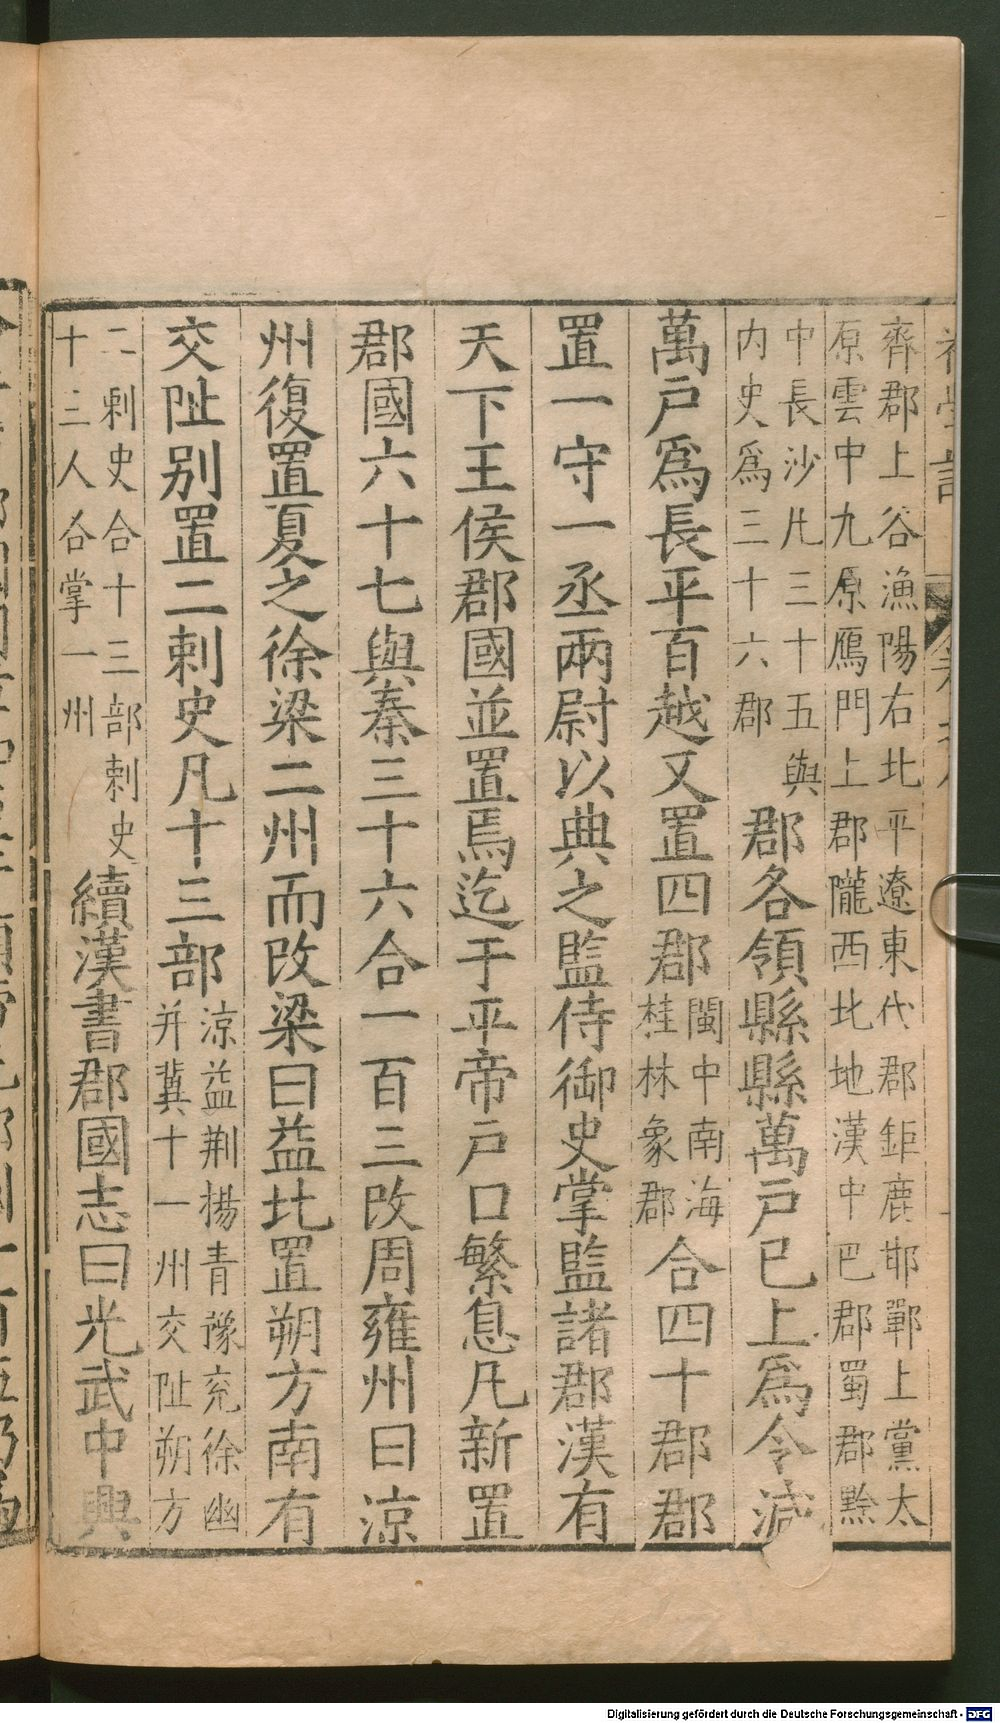 齊郡上谷漁陽右北平遼東代郡鉅鹿邯鄲上黨太
原雲中九原鴈門上郡隴西北地漢中巴郡蜀郡黔
中長沙凡三十五與
内史爲三十六郡
郡各領縣縣萬戸已上爲令減
萬戸爲長平百越又置四郡
閩中南海
桂林象郡
合四十郡郡
置一守一丞兩尉以典之監侍御史掌監諸郡漢有
天下王侯郡國並置焉迄于平帝戸口繁息凡新置
郡國六十七與秦三十六合一百三改周雍州曰涼
州復置夏之徐梁二州而改梁曰益北置朔方南有
交阯别置二刺史凡十三部
涼益荆揚青豫兖徐幽
并冀十一州交阯朔方
二刺史合十三部刺史
十三人各掌一州
續漢書郡國志曰光武中興
Digitalisierung gefördert durch die Deutsche Forschungsgemeinschaft - DFG